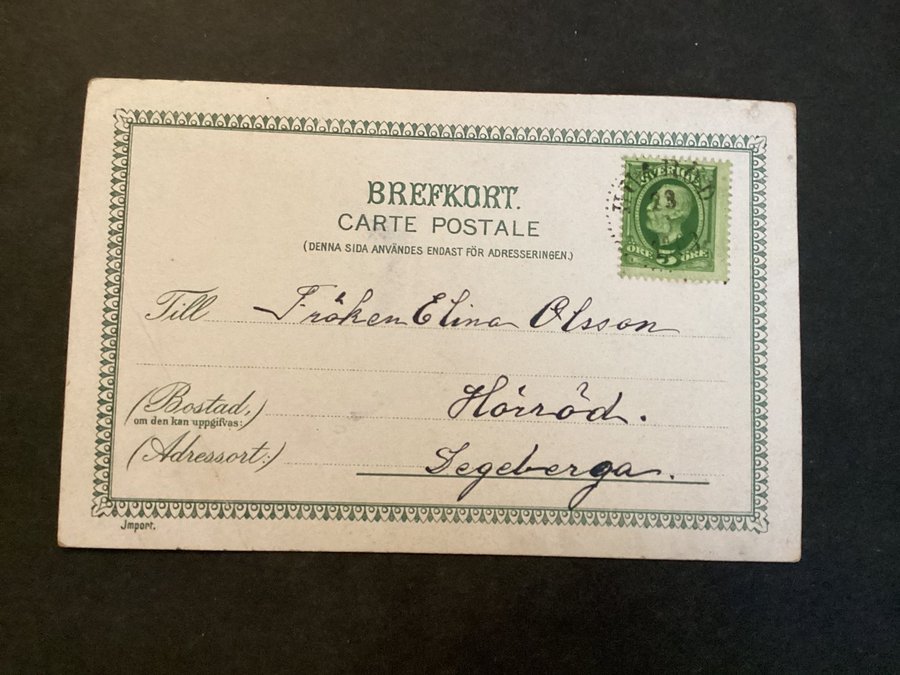 BREFKORT.
CARTE POSTALE
(DENNA SIDA ANVÄNDES ENDAST FÖR ADRESSERINGEN.)
SVERIGE
23
ÖRE 5 ÖRE
Till Fröken Elina Olsson
(Bostad,) Hörröd.
om den kan uppgifvas:
(Adressort:) Degeberga.
Jmport.